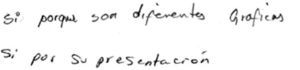 si porque son diferentes Graficas
si por su presentación